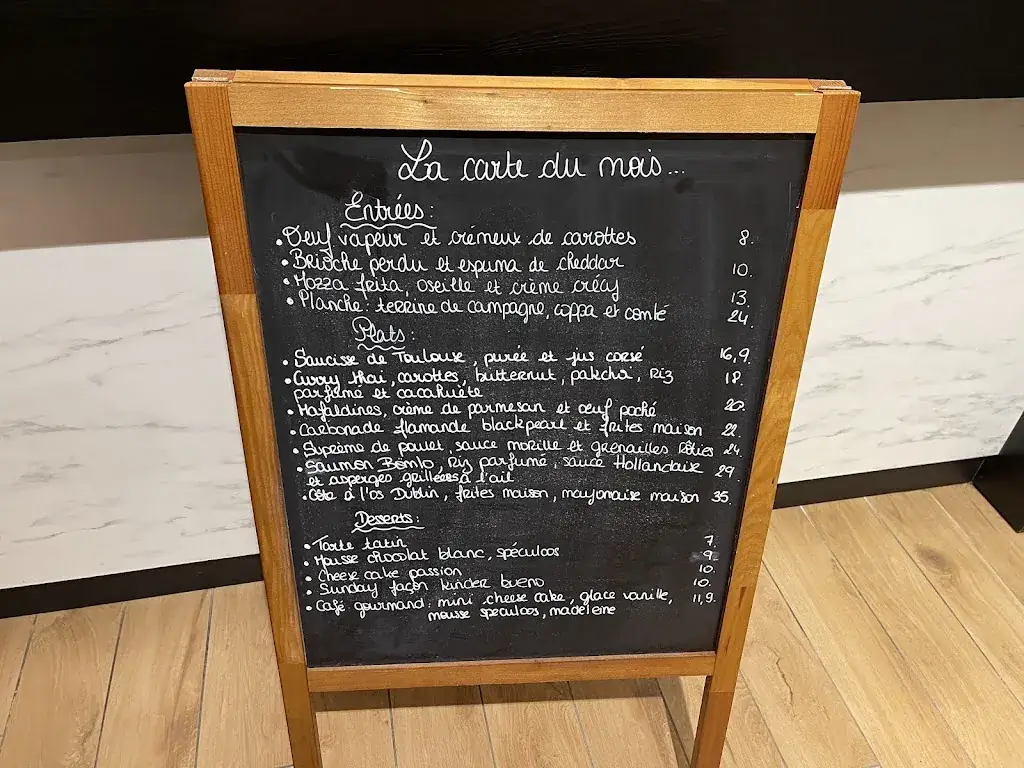 La carte du mois...
Entrées :
• Oeuf vapeur et crémeux de carottes 8.
• Brioche perdu et espuma de cheddar 10.
• Mozza frita, oseille et crème crécy 13.
• Planche : terrine de campagne, coppa et comté 24.
Plats :
• Saucisse de Toulouse, purée et jus corsé 16,9.
• Curry thai, carottes, butternut, pakchoi, riz 18.
parfumé et cacahuète
• Mafaldines, crème de parmesan et oeuf poché 20.
• Carbonade flamande blackpearl et frites maison 22.
• Suprème de poulet, sauce morille et grenailles rôties 24.
• Saumon Bomlo, riz parfumé, sauce Hollandaise 29.
et asperges grillées à l'ail
• Côte à l'os Dublin, frites maison, mayonaise maison 35.
Desserts :
• Tarte tatin 7.
• Mousse chocolat blanc, spéculoos 9.
• Cheese cake passion 10.
• Sunday façon kinder bueno 10.
• Café gourmand : mini cheese cake, glace vanille, 11,9.
mousse speculoos, madeleine